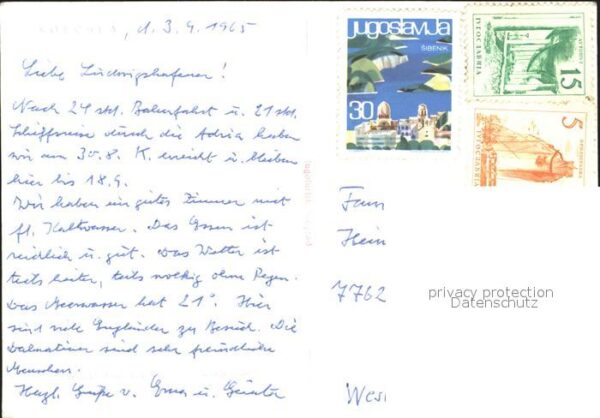 , d. 3.9.1965
Liebe Ludwigshafener!
Nach 24 std. Bahnfahrt u. 21 std.
Schiffsreise durch die Adria haben
wir am 30.8. K. erreicht u. bleiben
hier bis 18.9.
Wir haben ein gutes Zimmer mit
fl. Kaltwasser. Das Essen ist
reichlich u. gut. Das Wetter ist
teils heiter, teils wolkig ohne Regen.
Das Meerwasser hat 21°. Hier
sind viele Engländer zu Besuch. Die
Dalmatiner sind sehr freundliche
Menschen.
Herzl. Grüße v. Erna u. Günter
jugoslavija
ŠIBENIK
30
JUGOSLAVIJA
15
JUGOSLAVIJA
5
Fam
Hein
7762
privacy protection
Datenschutz
Wes